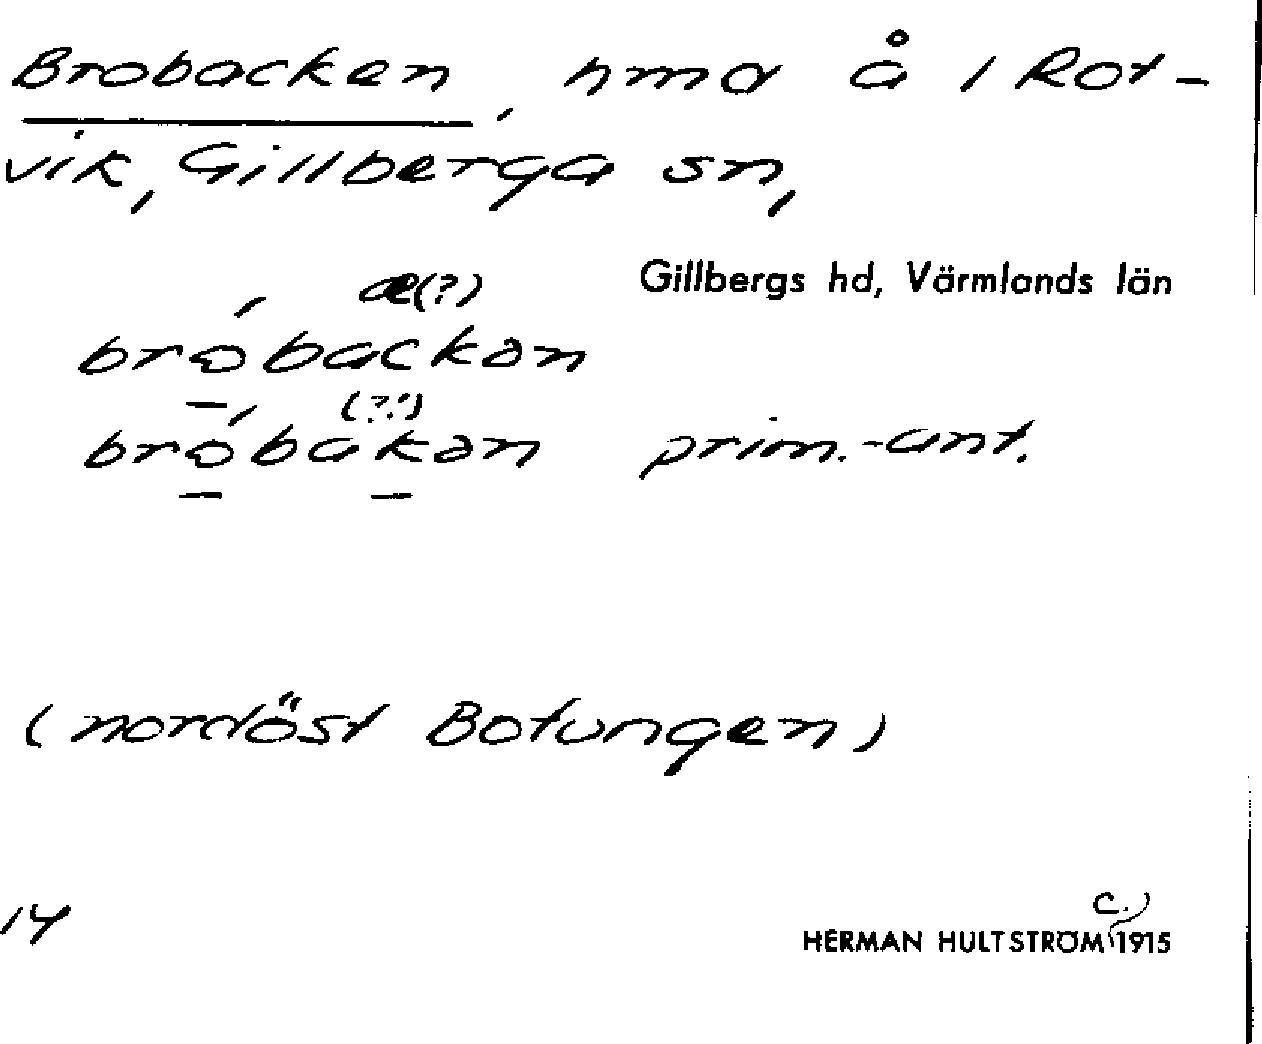 Brobacken, hmd å i Rot-
vik, Gillberga sn,
Gillbergs hd, Värmlands län
æ(?)
bró̱backən
(?:)
bró̱ba̱kən prim.-ant.
(nordöst Botungen)
c.)
14 HERMAN HULTSTRÖM 1915